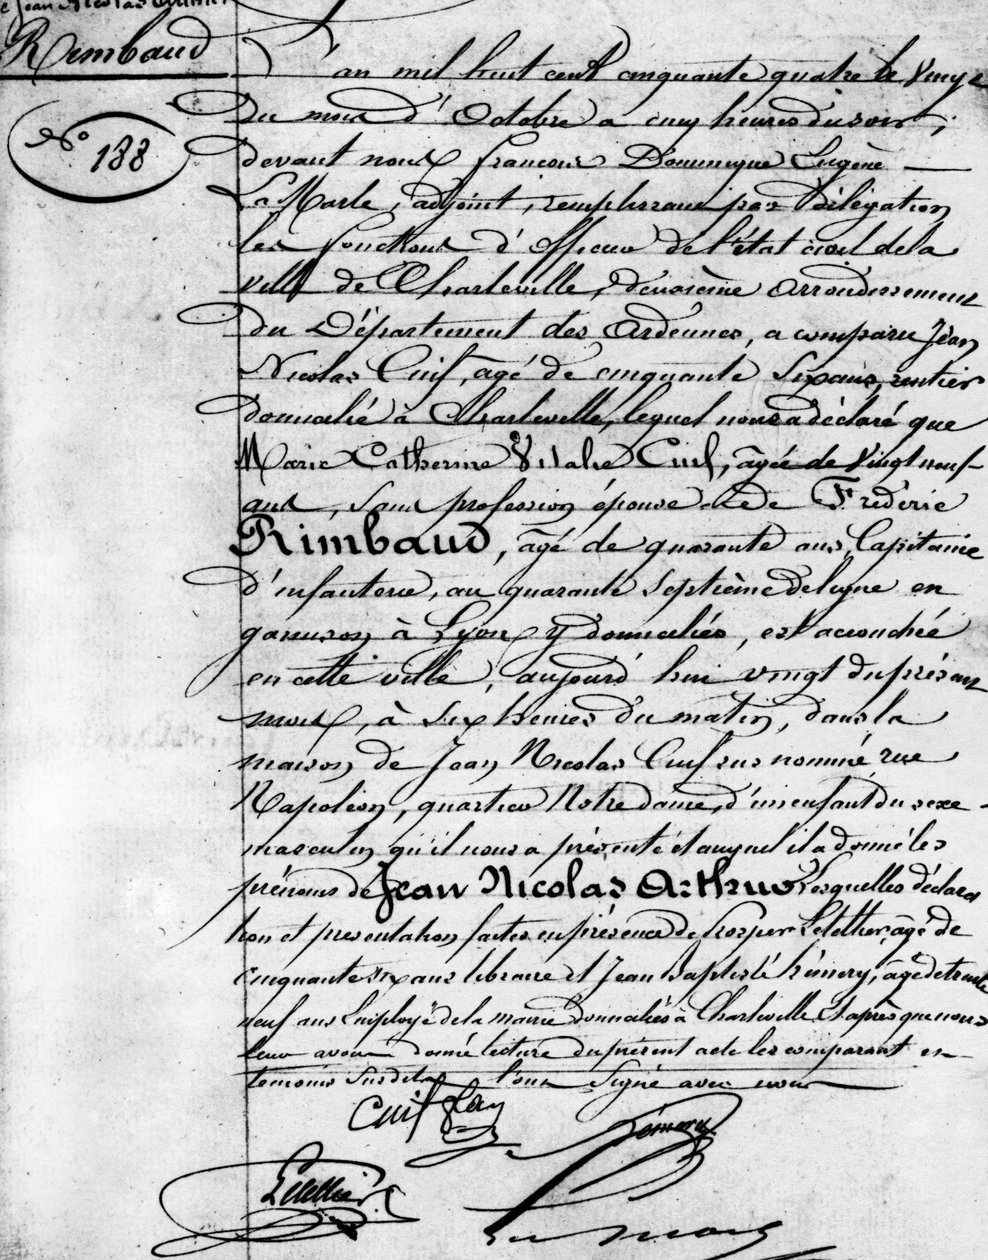 Jean Nicolas Arthur
Rimbaud
N° 188
L'an mil huit cent cinquante quatre le vingt
du mois d'Octobre a cinq heures du soir ;
devant nous françois Dominique Eugène —
La Marle, adjoint, remplissant par délégation
les fonctions d'officier de l'état civil de la
ville de Charleville, deuxième arrondissement
du Département des Ardennes, a comparu Jean
Nicolas Cuif, âgé de cinquante six ans, rentier
domicilié à Charleville, lequel nous a déclaré que
Marie Catherine Vitalie Cuif, âgée de vingt neuf
ans, sans profession épouse de Fréderic
Rimbaud, âgé de quarante ans, Capitaine
d'infanterie, au quarante septième de ligne en
garnison à Lyon y domiciliés, est accouchée
en cette ville, aujourd'hui vingt du présent
mois, à six heures du matin, dans la
maison de Jean Nicolas Cuif sus nommé rue
Napoléon, quartier Notre dame, d'un enfant du sexe -
masculin qu'il nous a présenté et auquel il a donné les
prénoms de Jean Nicolas Arthur Lesquelles déclara
tion et présentation faites en présence de Prosper Letellier, âgé de
cinquante six ans libraire et Jean Baptiste hémery, âgé de trente
neuf ans Employé de la mairie domiciliés à Charleville Et après que nous
leur avons donné lecture du présent acte les comparant et
témoins susdits l'ont signé avec nous
Cuif Jean
hémery
Letellier